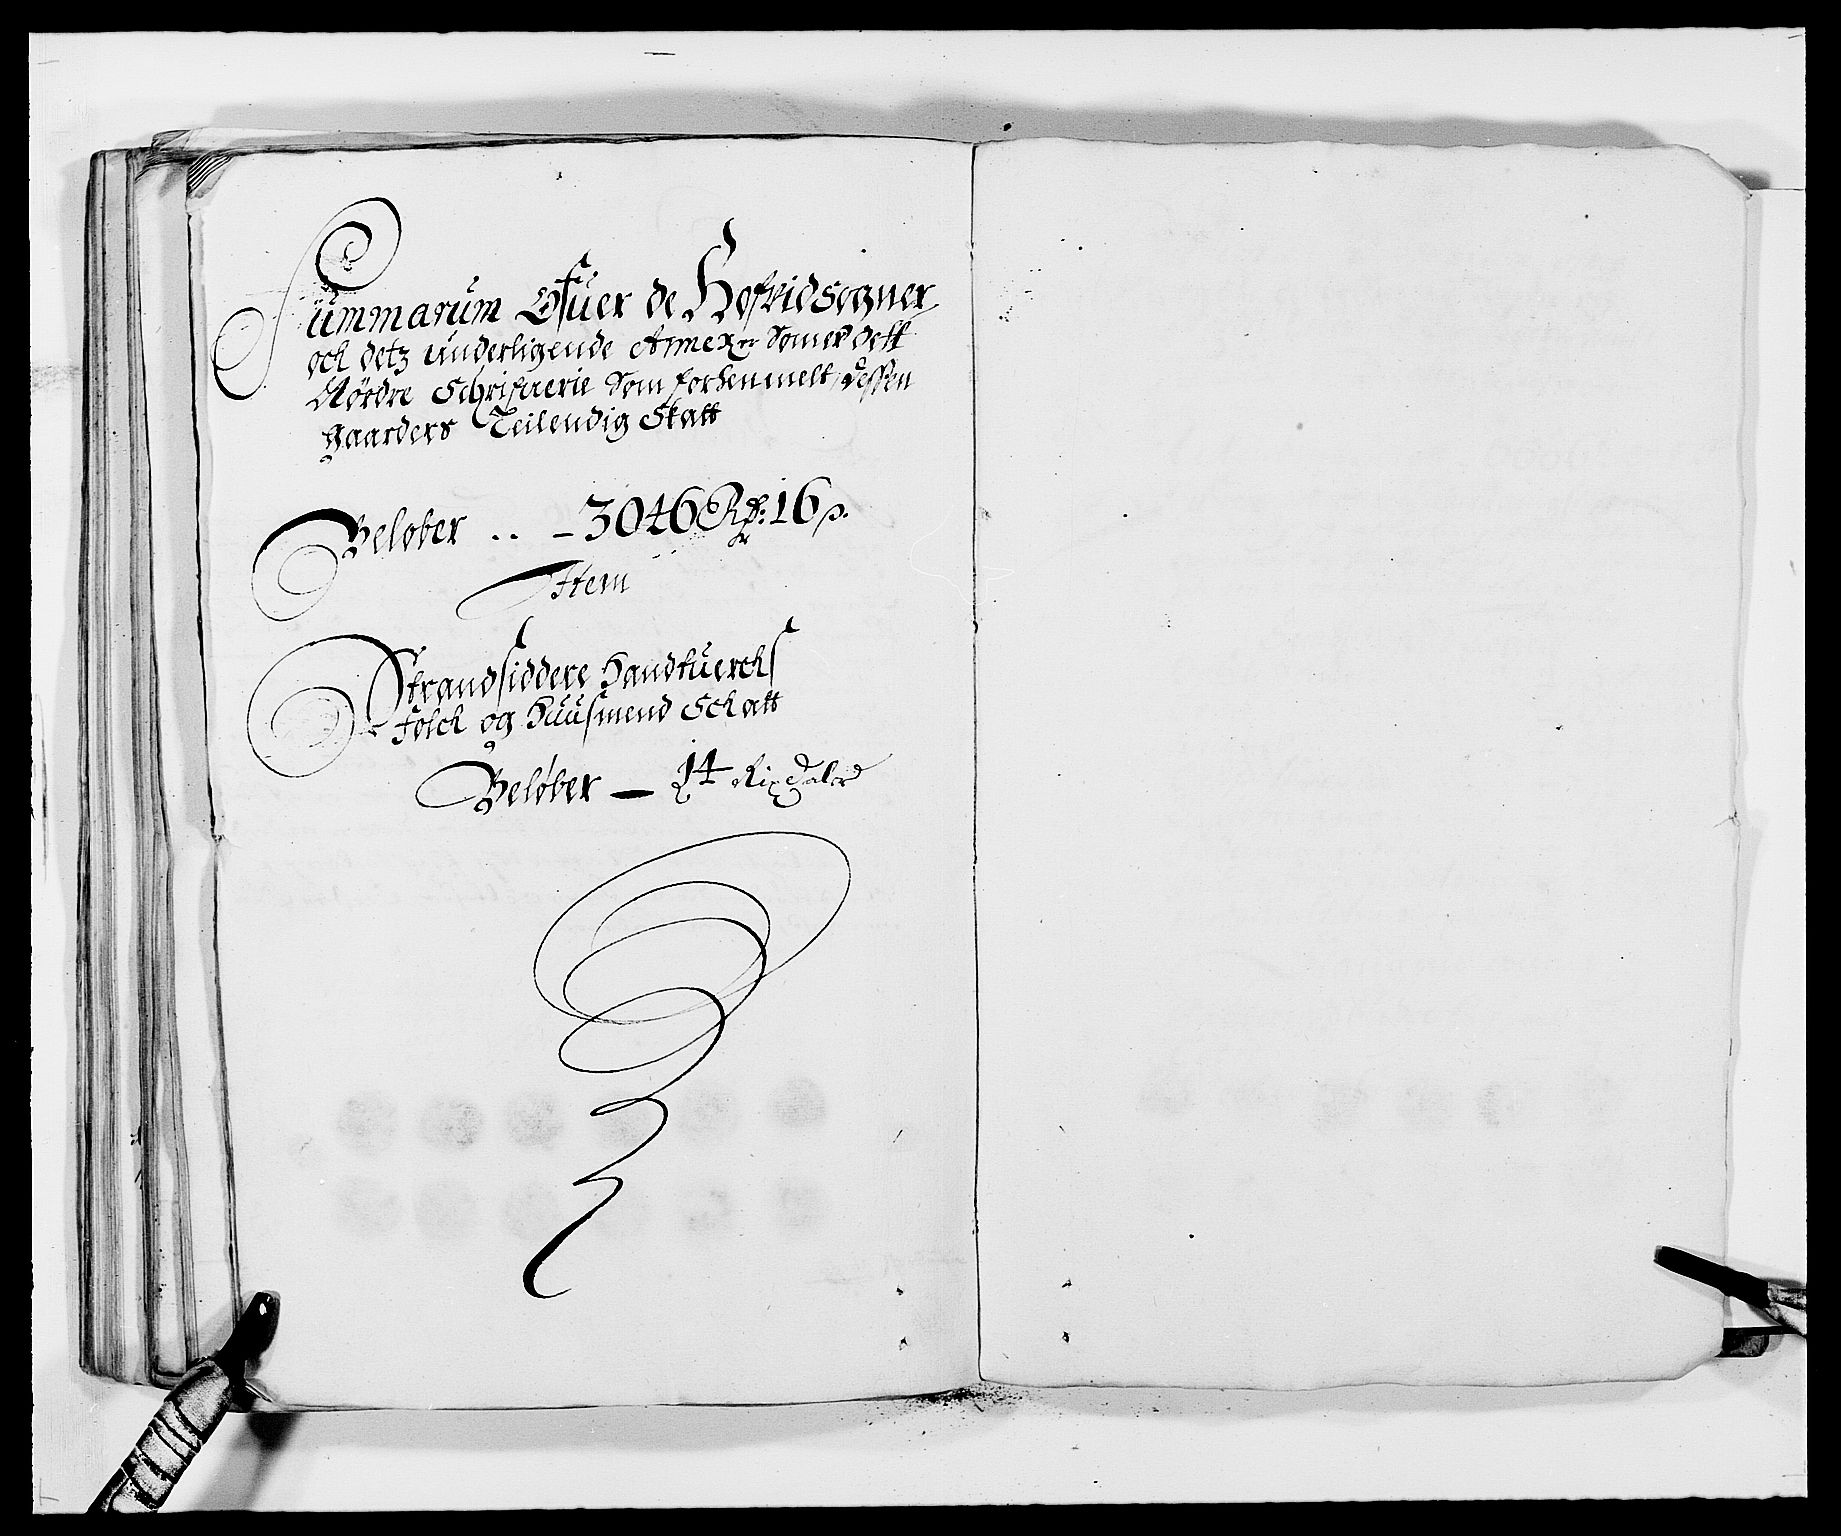 Summarum Ofuer de Hofvidsogner
och detz underligende Annexer Somer dett
Nørdre Schrifuerie Som forhen melt, dessen
gaarders Teilendig Skatt
Beløber .. - 3046 Rd: 16 s.
Item
Strandsiddere Handtuercks
Folch og Huusmend Schatt
Beløber - 14 Rix Daler